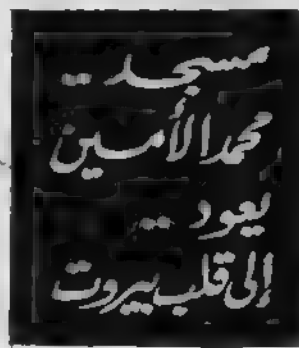 مسجد ..
محمد الأمين
يعود ..
إلى قلب بيروت